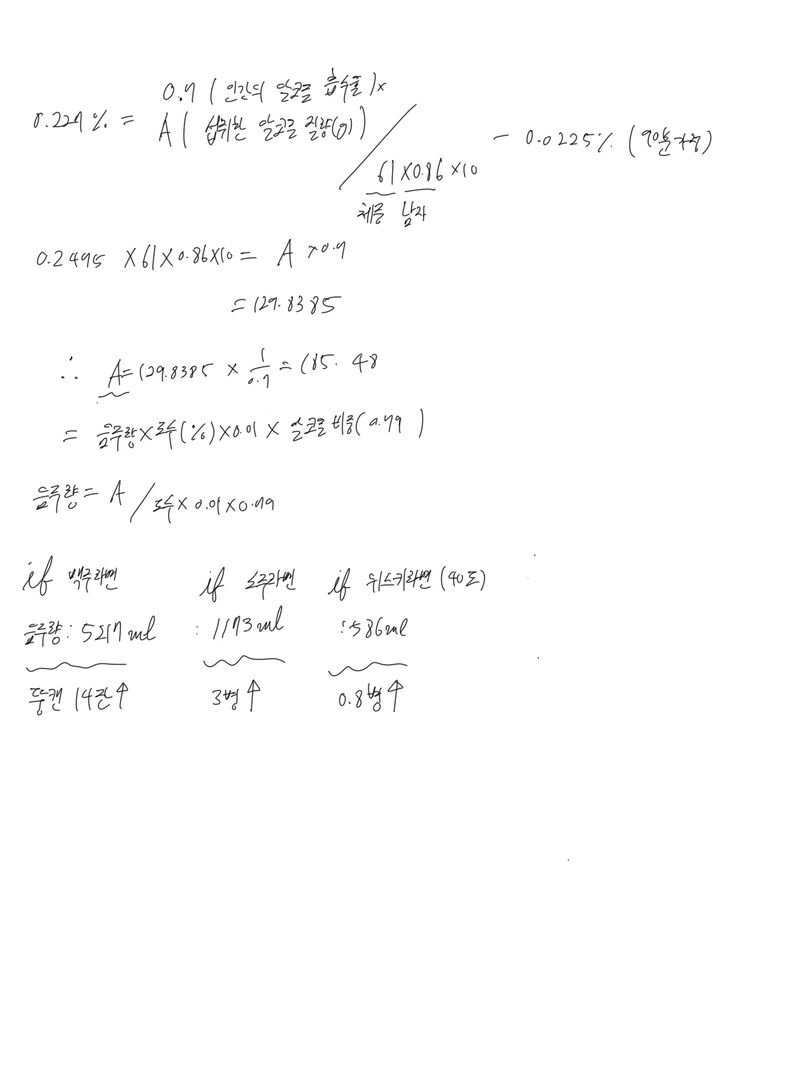 0.7 (인간의 알코올 흡수율)×
0.227% = A( 섭취한 알코올 질량(g)) / 61×0.86×10 - 0.0225% (90분가정)
체중 남자
0.2495 ×61×0.86×10= A ×0.7
=129.8385
∴ A=129.8385 × 1/0.7 = 185.48
= 음주량×도수(%)×0.01× 알코올비중(0.79)
음주량= A / 도수×0.01×0.79
if 맥주라면 if 소주라면 if 위스키라면 (40도)
음주량: 5217ml : 1173ml :586ml
뚱캔 14잔↑ 3병↑ 0.8병↑